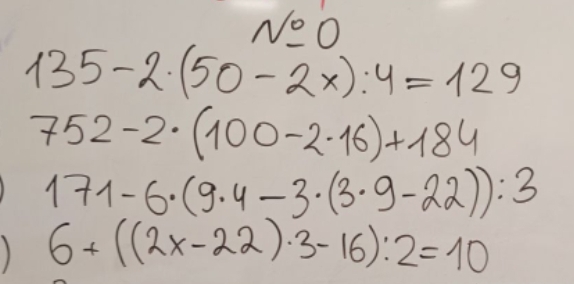 №0
135-2·(50-2x):4=129
752-2·(100-2·16)+184
) 171-6·(9·4-3·(3·9-22)):3
) 6+((2x-22)·3-16):2=10